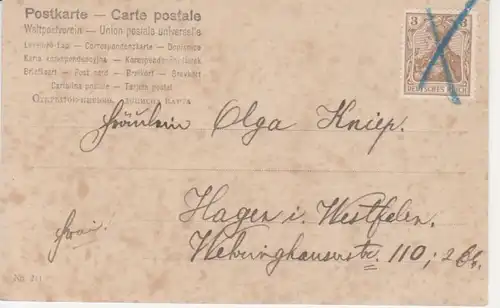 Postkarte — Carte postale
Weltpostverein — Union postale universelle
Levelező-Lap — Correspondenzkarte — Dopisnice
Karta korespondencyjna — Korespondenční lístek
Briefkaart — Post card — Brefkort — Brevkort
Cartolina postale — Tarjeta postal
3 3
DEUTSCHES REICH
Fräulein Olga Kniep.
Hagen i. Westfalen.
Frei.
Wehringhauserstr. 110, 2 Etg.
No. 211